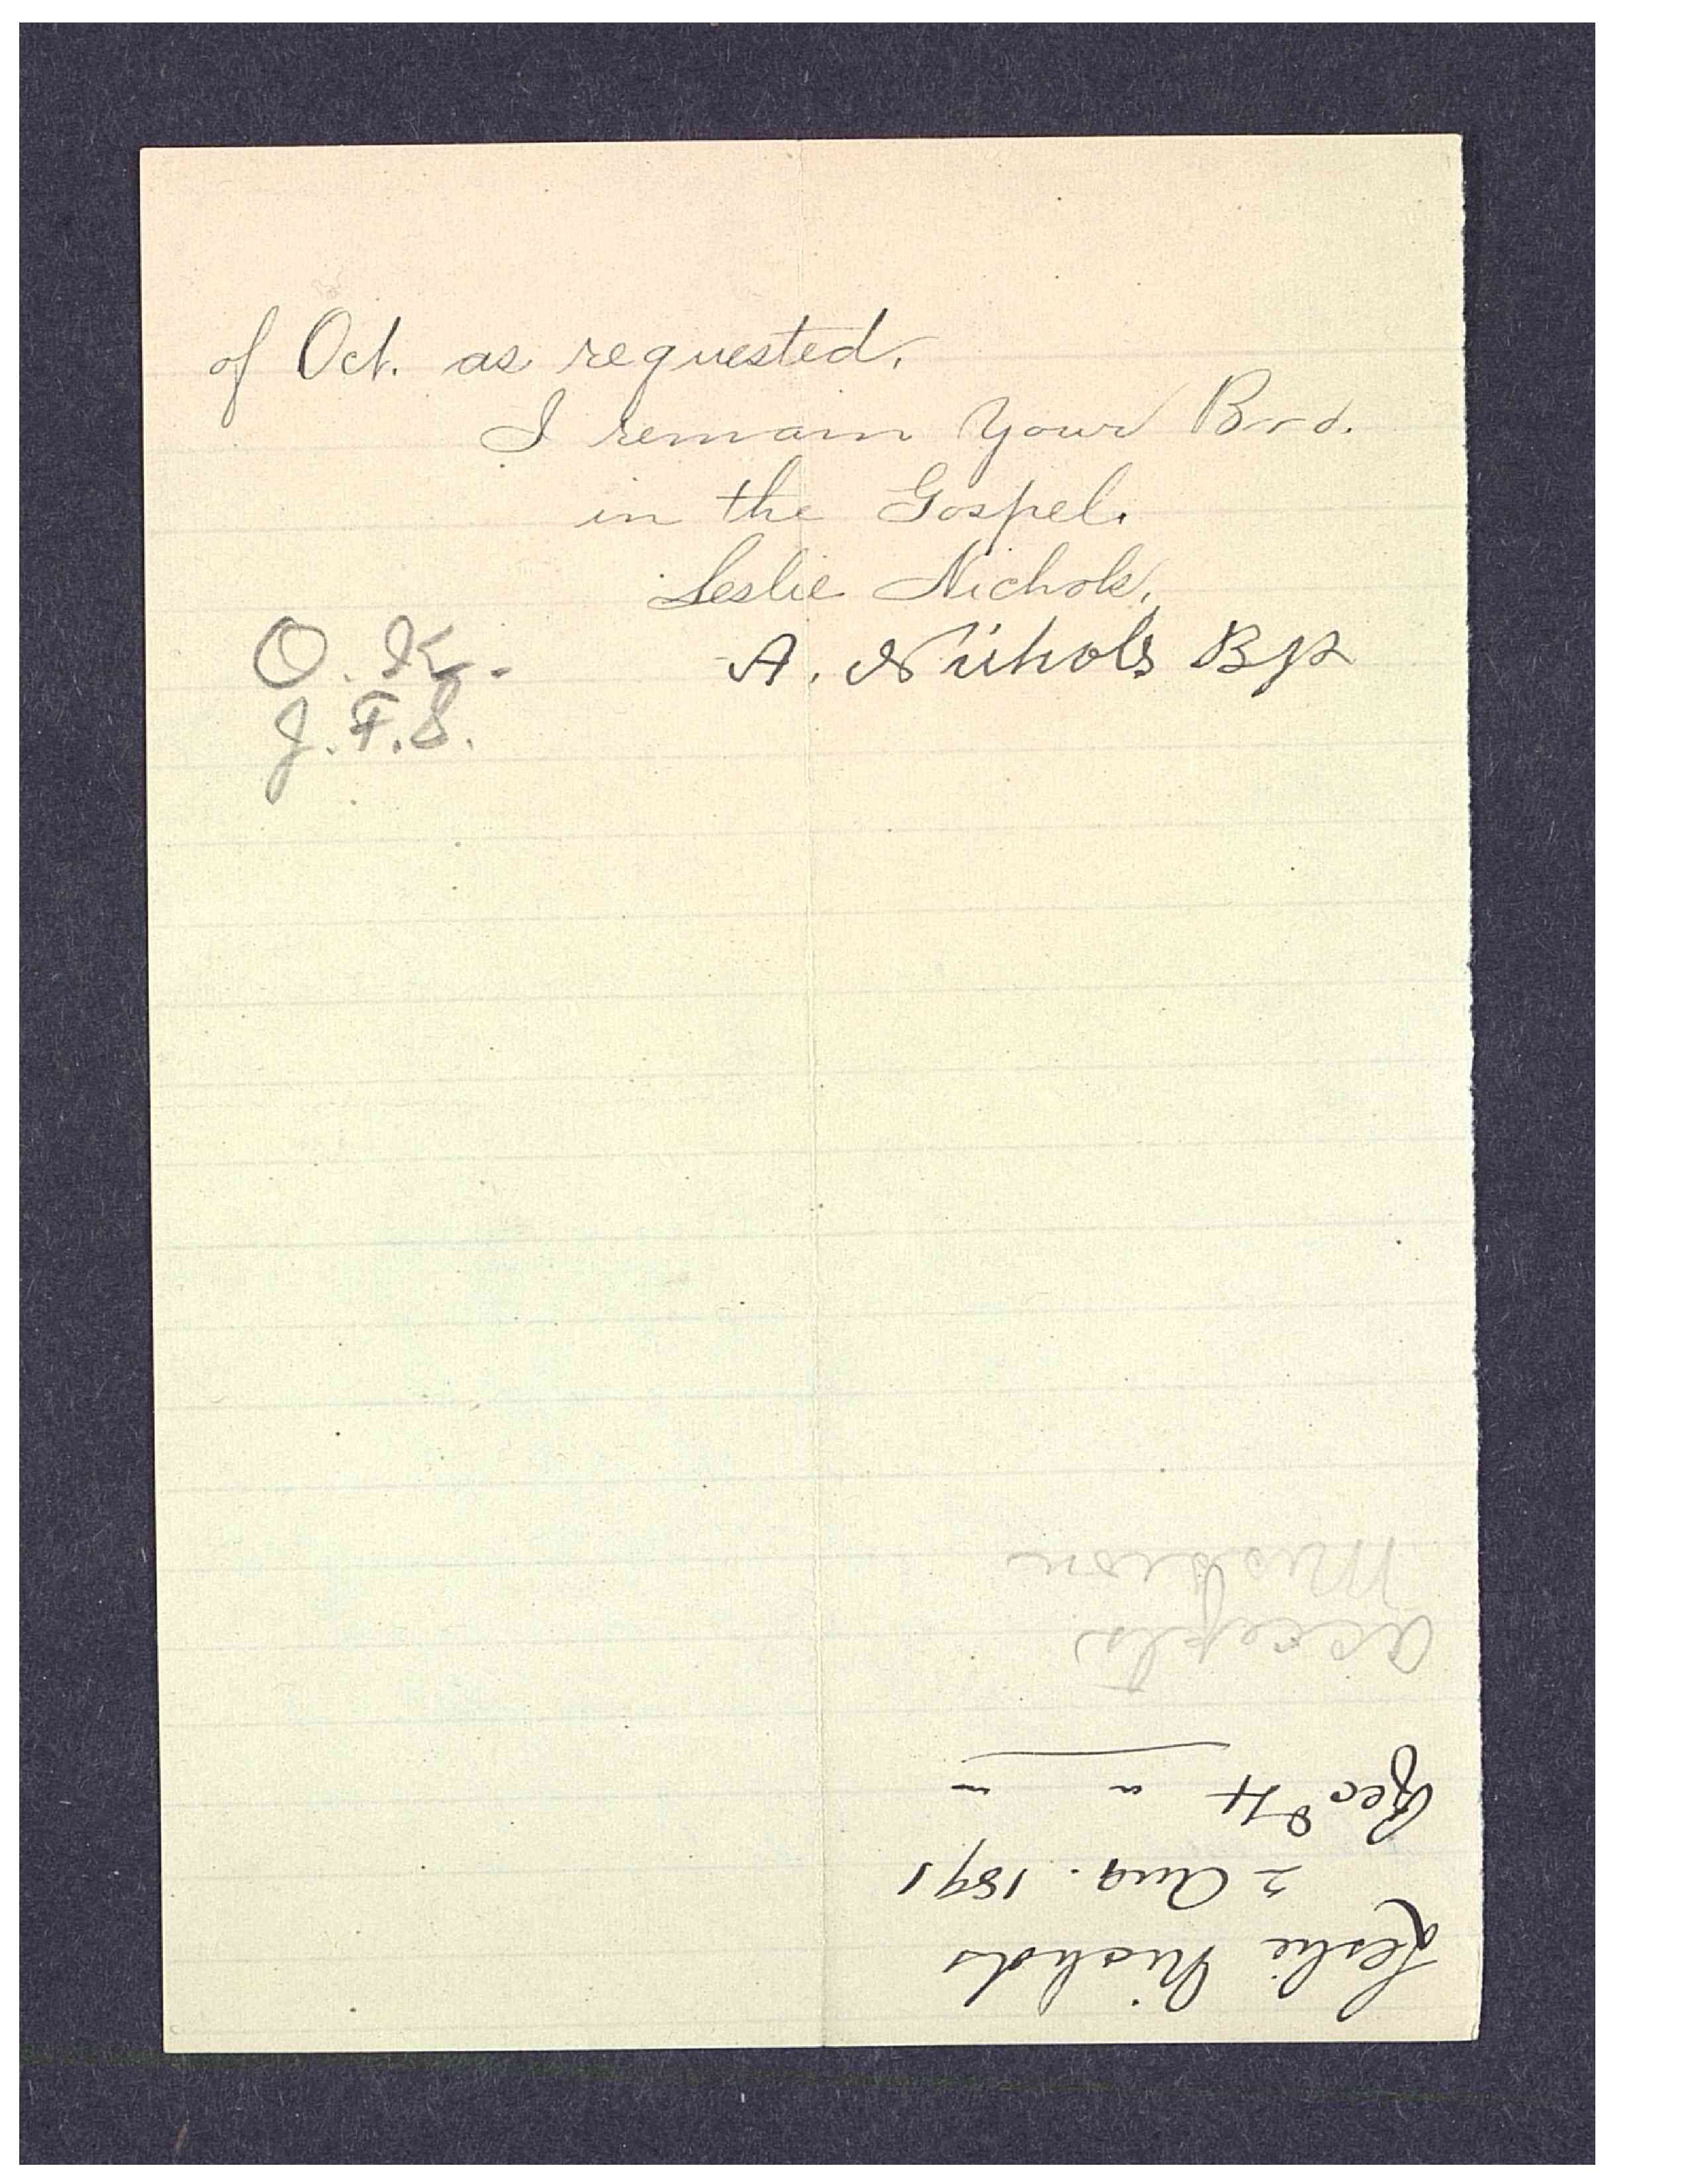 of Oct. as requested.
I remain Your Bro.
in the Gospel.
Leslie Nichols.
A. Nichols Bp
O.K.
J.F.S.
Leslie Nichols
2 Aug. 1891
Recd 4 " "
Accepts
Mission